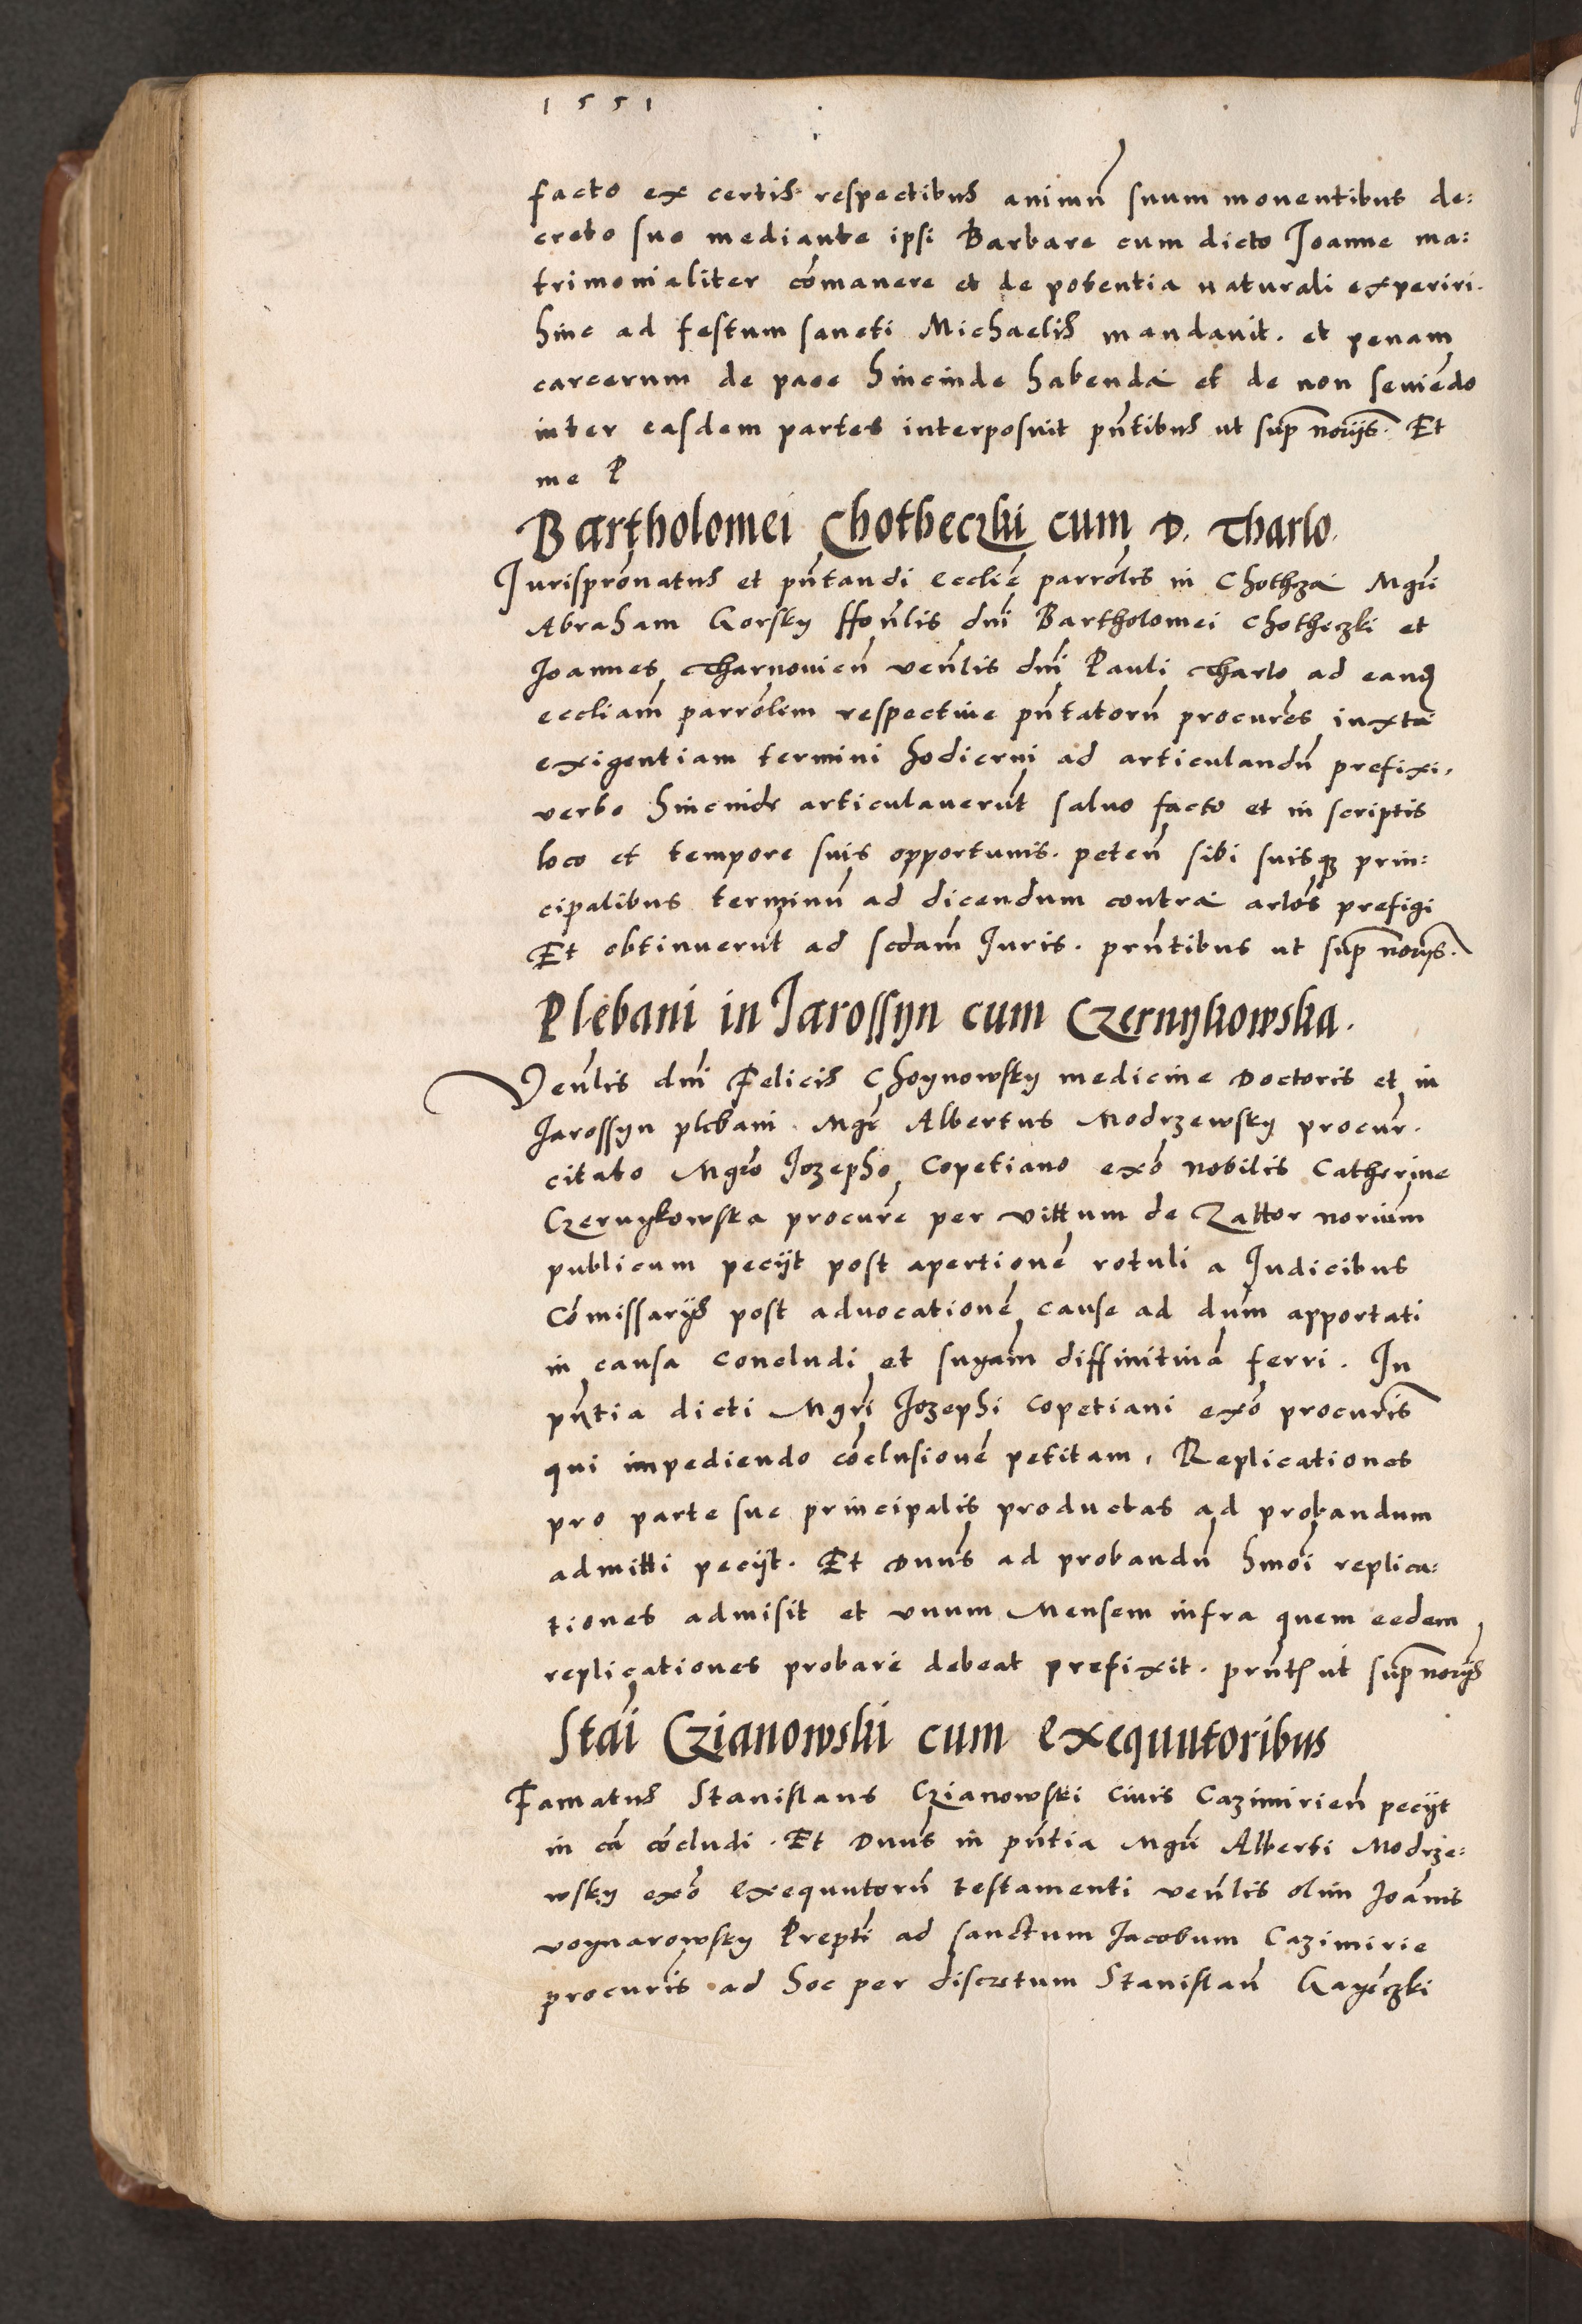 1551
facto ex certis respectibus animũ suum monentibus de:
creto suo mediante ipsi Barbare cum dicto Joanne ma:
trimonialiter cõmanere et de potentia naturali experiri.
hinc ad festum sancti Michaelis mandauit. et penam
carcerum de pace hincinde habenda et de non seuiẽdo
inter easdem partes interposuit pñtibus ut sup norijs. Et
me P
Bartholomei Chotheczki cum D. Tharlo.
Jurisprõnatus et pñtandi ecclie parrõlis in Chothza Mgri
Abraham Gorsky ffonlis dni Bartholomei Chotheczki et
Joannes Tharnouieñ venlis dni Pauli Tharlo ad eand
eccliam parrõlem respectiue pñtatorũ procures iuxta
exigentiam termini hodierni ad articulandũ prefixi.
verbo hincinde articulauerũt saluo facto et in scriptis
loco et tempore suis opportunis. peteñ sibi suisq prin:
cipalibus terminũ ad dicendum contra arlos prefigi
Et obtinuerũt ad scdam Juris. prñtibus ut sup norijs.
Plebani in Jarossyn cum Czernykowska.
Venlis dni Felicis Choynowsky medicine Doctoris et in
Jarossyn plebani. Mgr Albertus Modrzewsky procur.
citato Mgro Jozepho Copetiano exõ nobilis Catherine
Czernykowska procure per vittum de Zattor norium
publicum pecijt post apertionẽ rotuli a Judicibus
Cõmissarijs post aduocationẽ cause ad dum apportati
in causa concludi et snyam diffinitiuã ferri. In
pñtia dicti Mgri Jozephi Copetiani exõ procuris
qui impediendo cõclusionẽ petitam, Replicationes
pro parte sue principalis productas ad probandum
admitti pecijt. Et Dnns ad probandũ hmoi replica:
tiones admisit et vnum Mensem infra quem eedem
replicationes probare debeat prefixit. prñt ut sup norijs
Stai Czianowski cum exequutoribus
Famatus Stanislaus Czianowski Ciuis Cazimirieñ pecijt
in cã cõcludi. Et Dnns in pñtia Mgri Alberti Modrze:
wsky exõ exequutorũ testamenti venlis olim Joãnis
voynarowsky Prepti ad sanctum Jacobum Cazimirie
procuris ad hoc per discretum Stanislaũ Gayeczki